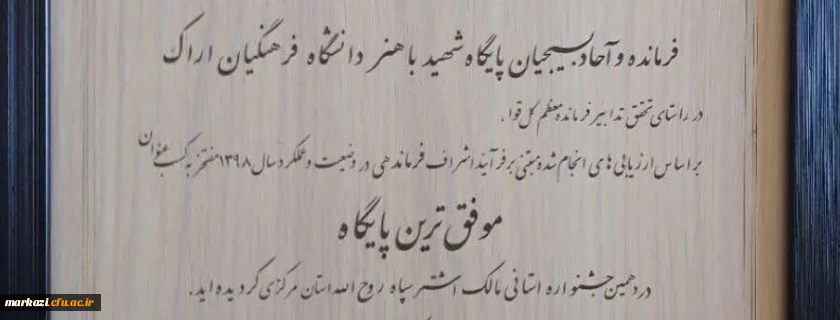 فرمانده و آحاد بسیجیان پایگاه شهید باهنر دانشگاه فرهنگیان اراک
در راستای تحقق تدابیر فرمانده معظم کل قوا،
بر اساس ارزیابی های انجام شده مبتنی بر فرآیند اشراف فرماندهی در وضعیت و عملکرد سال ۱۳۹۸ مفتخر به کسب عنوان
موفق ترین پایگاه
در دهمین جشنواره استانی مالک اشتر سپاه روح الله استان مرکزی گردیده اید.
markazi.cfu.ac.ir